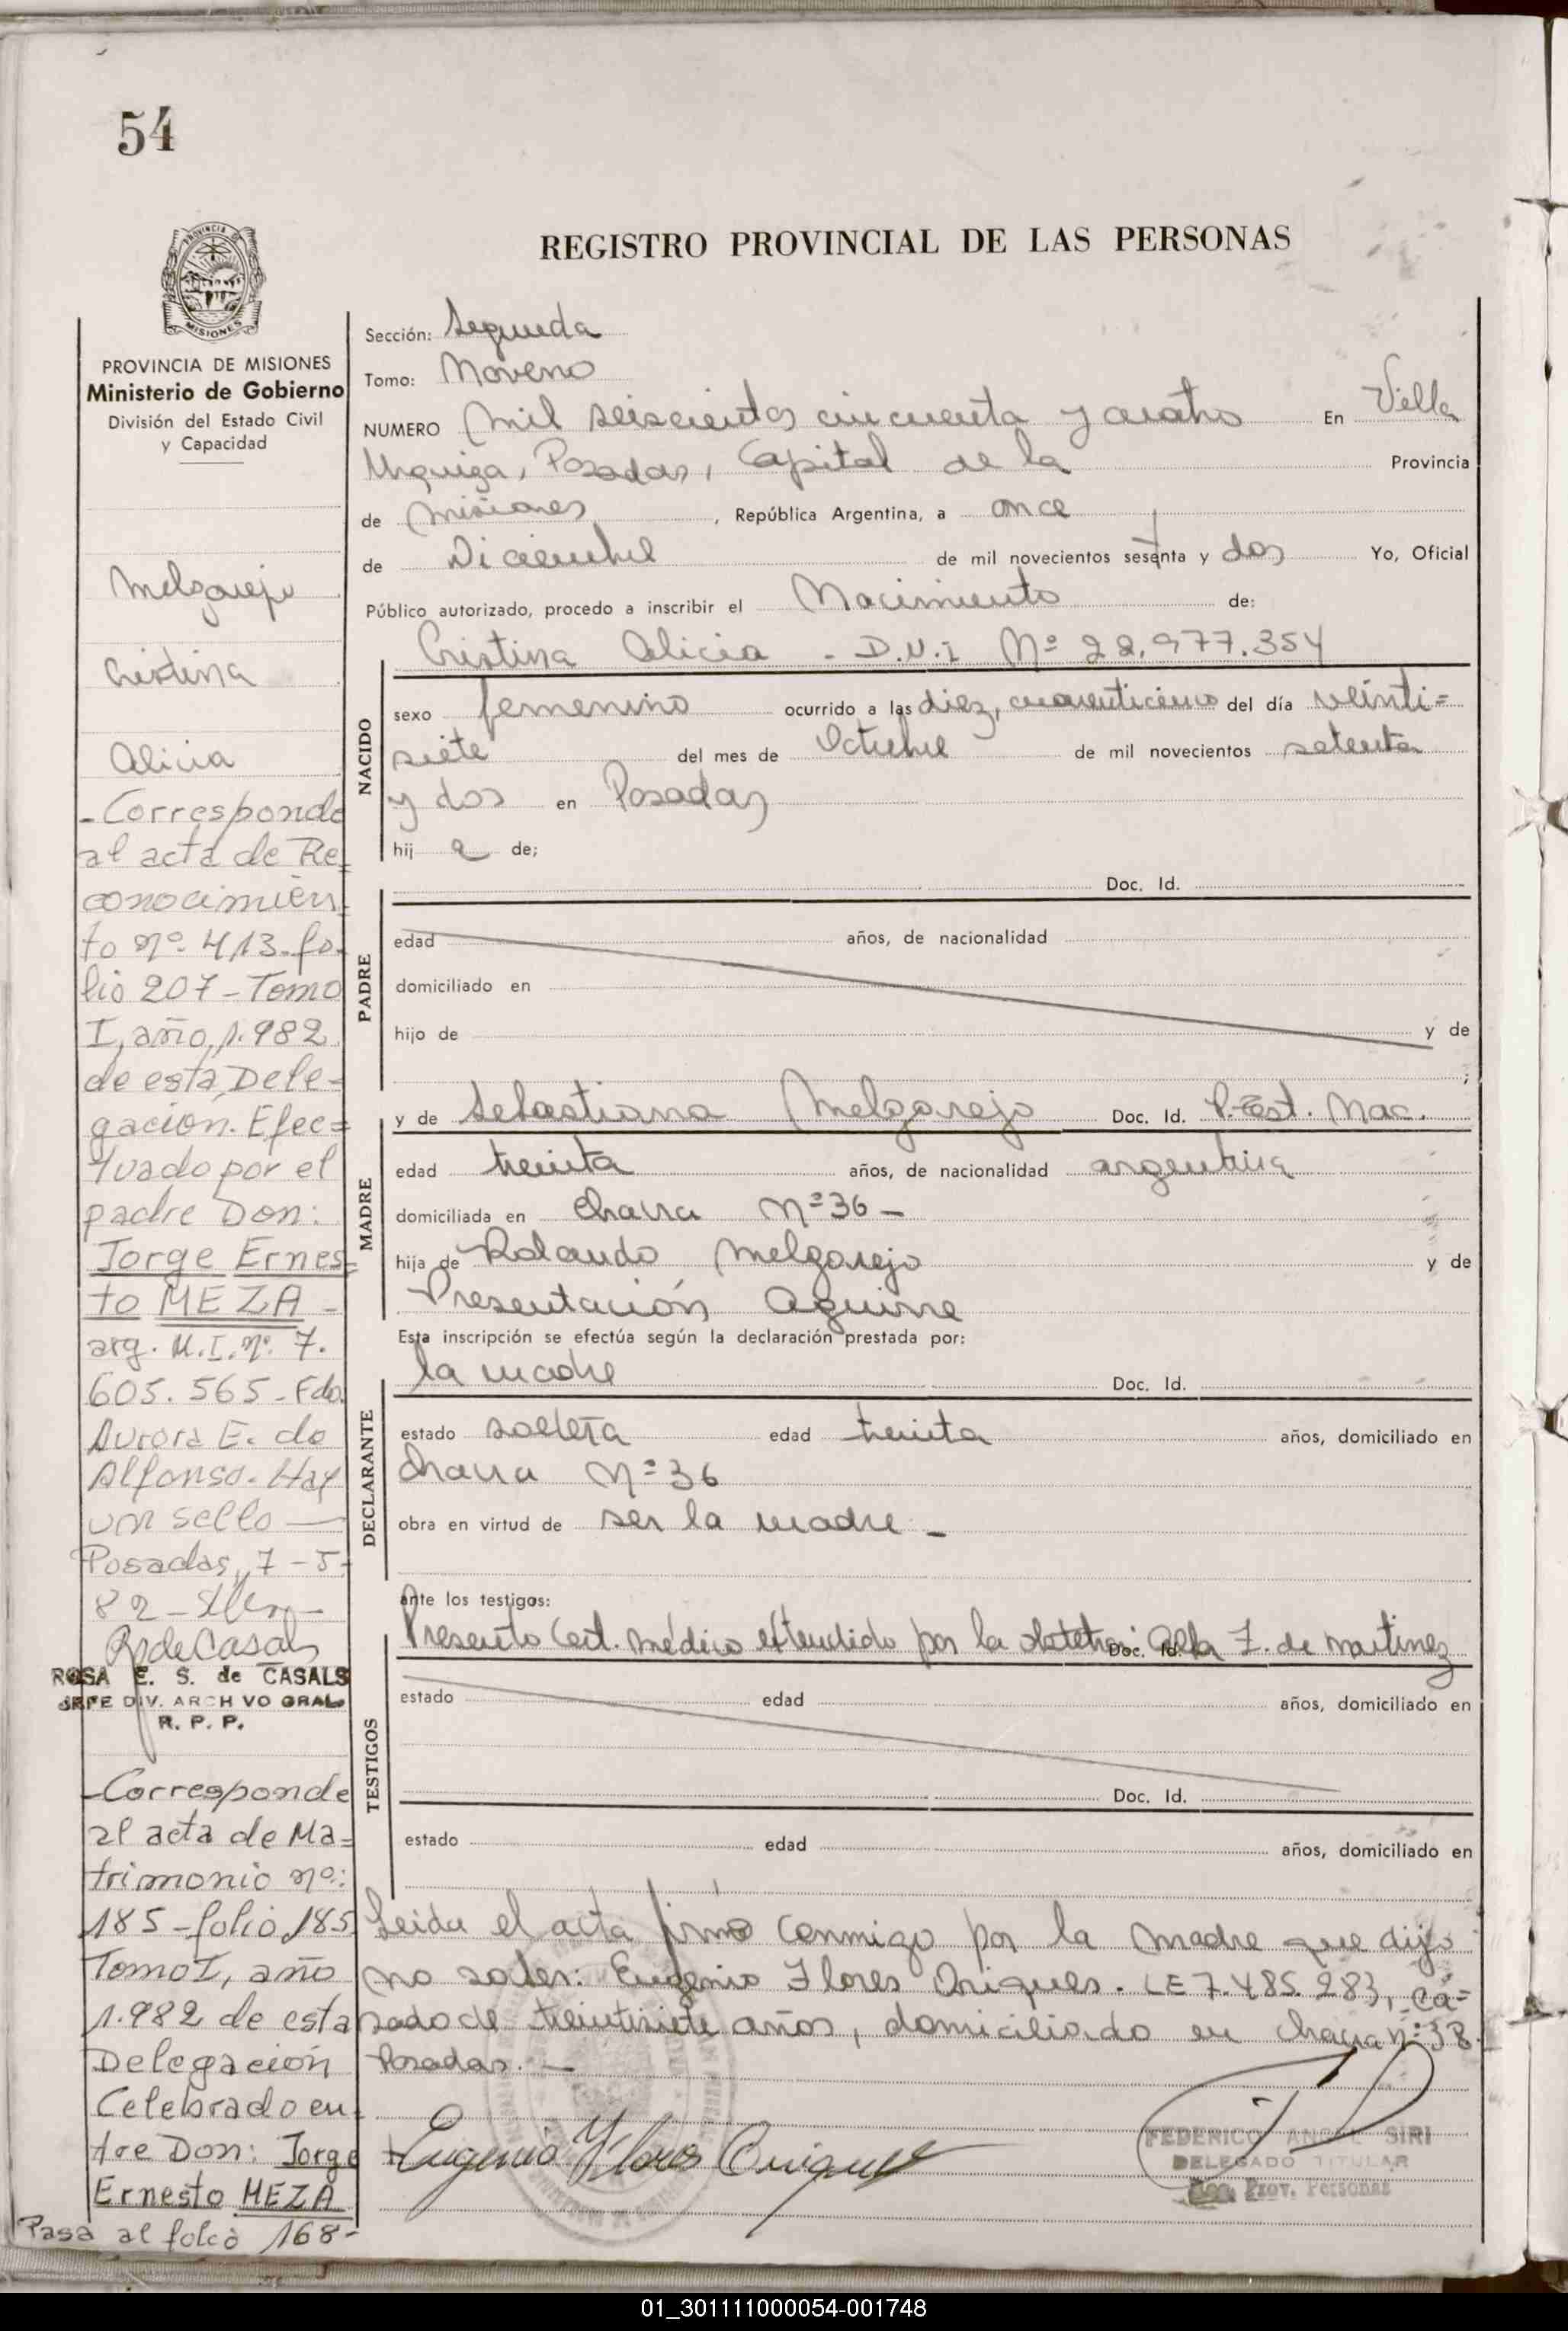 54
REGISTRO PROVINCIAL DE LAS PERSONAS
PROVINCIA DE MISIONES
Ministerio de Gobierno
División del Estado Civil
y Capacidad
Melgarejo
Cristina
Alicia
- Corresponde
al acta de Re-
conocimien-
to nº 413-fo-
lio 207 - Tomo
I, año, 1.982
de esta Dele-
gación. Efec=
tuado por el
padre Don:
Jorge Ernes=
to MEZA -
arg. M.I. nº 7.
605.565 - Fdo.
Aurora E. de
Alfonso. Hay
un sello —
Posadas, 7 - 5-
82 -
R de Casals
ROSA E. S. de CASALS
JEFE DIV. ARCHIVO GRAL.
R. P. P.
- Corresponde
al acta de Ma=
trimonio nº:
185 - folio 185
Tomo I, año
1.982 de esta
Delegación
Celebrado en-
tre Don: Jorge
Ernesto MEZA
Pasa al folio 168-
Sección: Segunda
Tomo: Noveno
NUMERO Mil seiscientos cincuenta y cuatro En Villa
Urquiza, Posadas, Capital de la Provincia
de Misiones, República Argentina, a once
de Diciembre de mil novecientos sesenta y dos Yo, Oficial
Público autorizado, procedo a inscribir el Nacimiento de:
Cristina Alicia - D.N.I Nº 22.977.354
NACIDO
sexo femenino ocurrido a las diez, cuarenticinco del día veinti=
siete del mes de Octubre de mil novecientos setenta
y dos en Posadas
hij a de;
Doc. Id.
PADRE
edad años, de nacionalidad
domiciliado en
hijo de y de
;
MADRE
y de Sebastiana Melgarejo Doc. Id. P. Test. Nac.
edad treinta años, de nacionalidad argentina
domiciliada en Chacra Nº 36 -
hija de Rolando Melgarejo y de
Presentación Aguirre
Esta inscripción se efectúa según la declaración prestada por:
la madre Doc. Id.
DECLARANTE
estado soltera edad treinta años, domiciliado en
Chacra Nº 36
obra en virtud de ser la madre -
ante los testigos:
Presento Cert. médico extendido por la obstetra: Doc. Id. Z. de Martinez
TESTIGOS
estado edad años, domiciliado en
Doc. Id.
estado edad años, domiciliado en
Leida el acta firmó conmigo por la madre que dijo
no saber: Eugenio Flores Oriques. LE 7.485.283, ca=
sado de treintisiete años, domiciliado en chacra nº 38
Posadas. —
Eugenio Flores Oriques
FEDERICO ANGEL SIRI
DELEGADO TITULAR
Reg. Prov. Personas
01_301111000054-001748